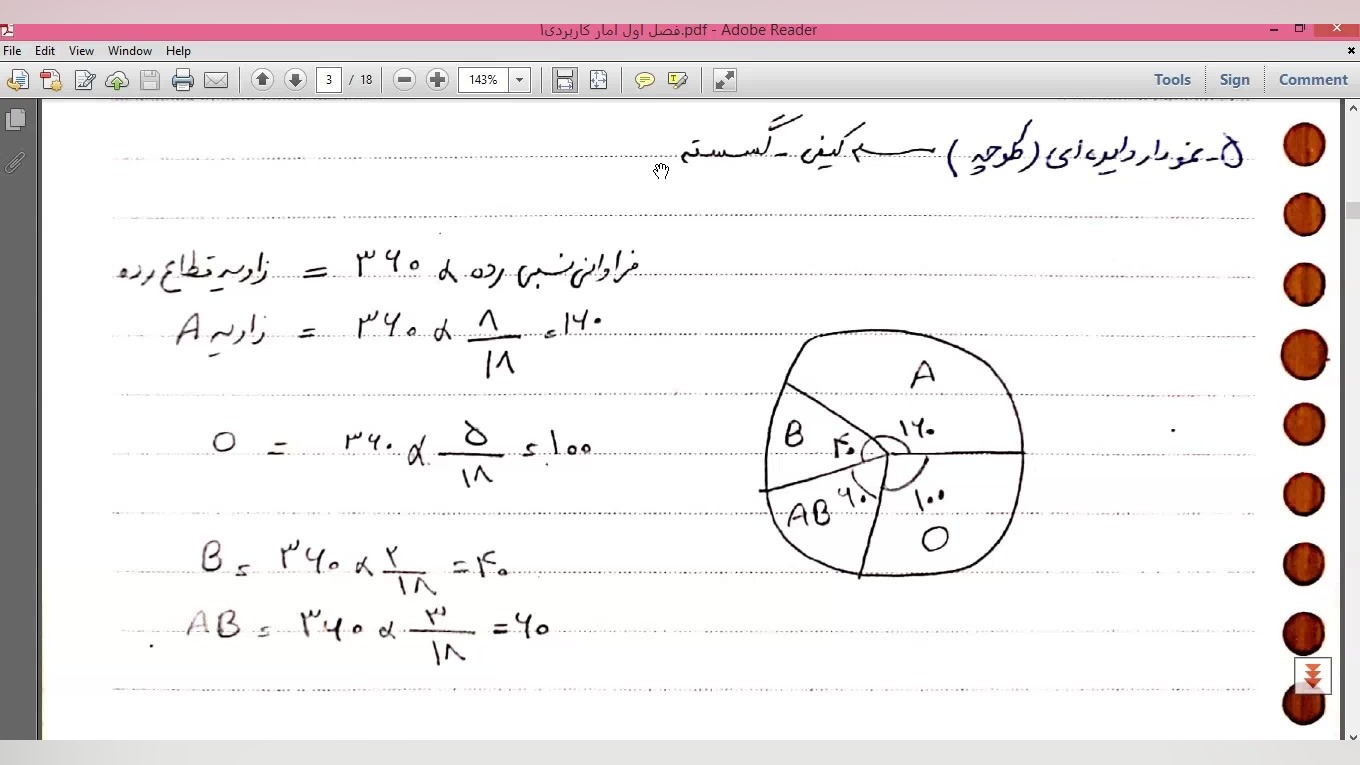 فصل اول امار کاربردی۱.pdf - Adobe Reader
File Edit View Window Help
3 / 18 143% Tools Sign Comment
۵- نمودار دایره ای (کلوچه) رسم کیفی - گسسته
زاویه قطاع رده = ۳۶۰ × فراوانی نسبی رده
زاویه A = ۳۶۰ × ۸/۱۸ = ۱۶۰
O = ۳۶۰ × ۵/۱۸ = ۱۰۰
B = ۳۶۰ × ۲/۱۸ = ۴۰
AB = ۳۶۰ × ۳/۱۸ = ۶۰
A
B ۴۰ ۱۶۰
AB ۶۰ ۱۰۰
O